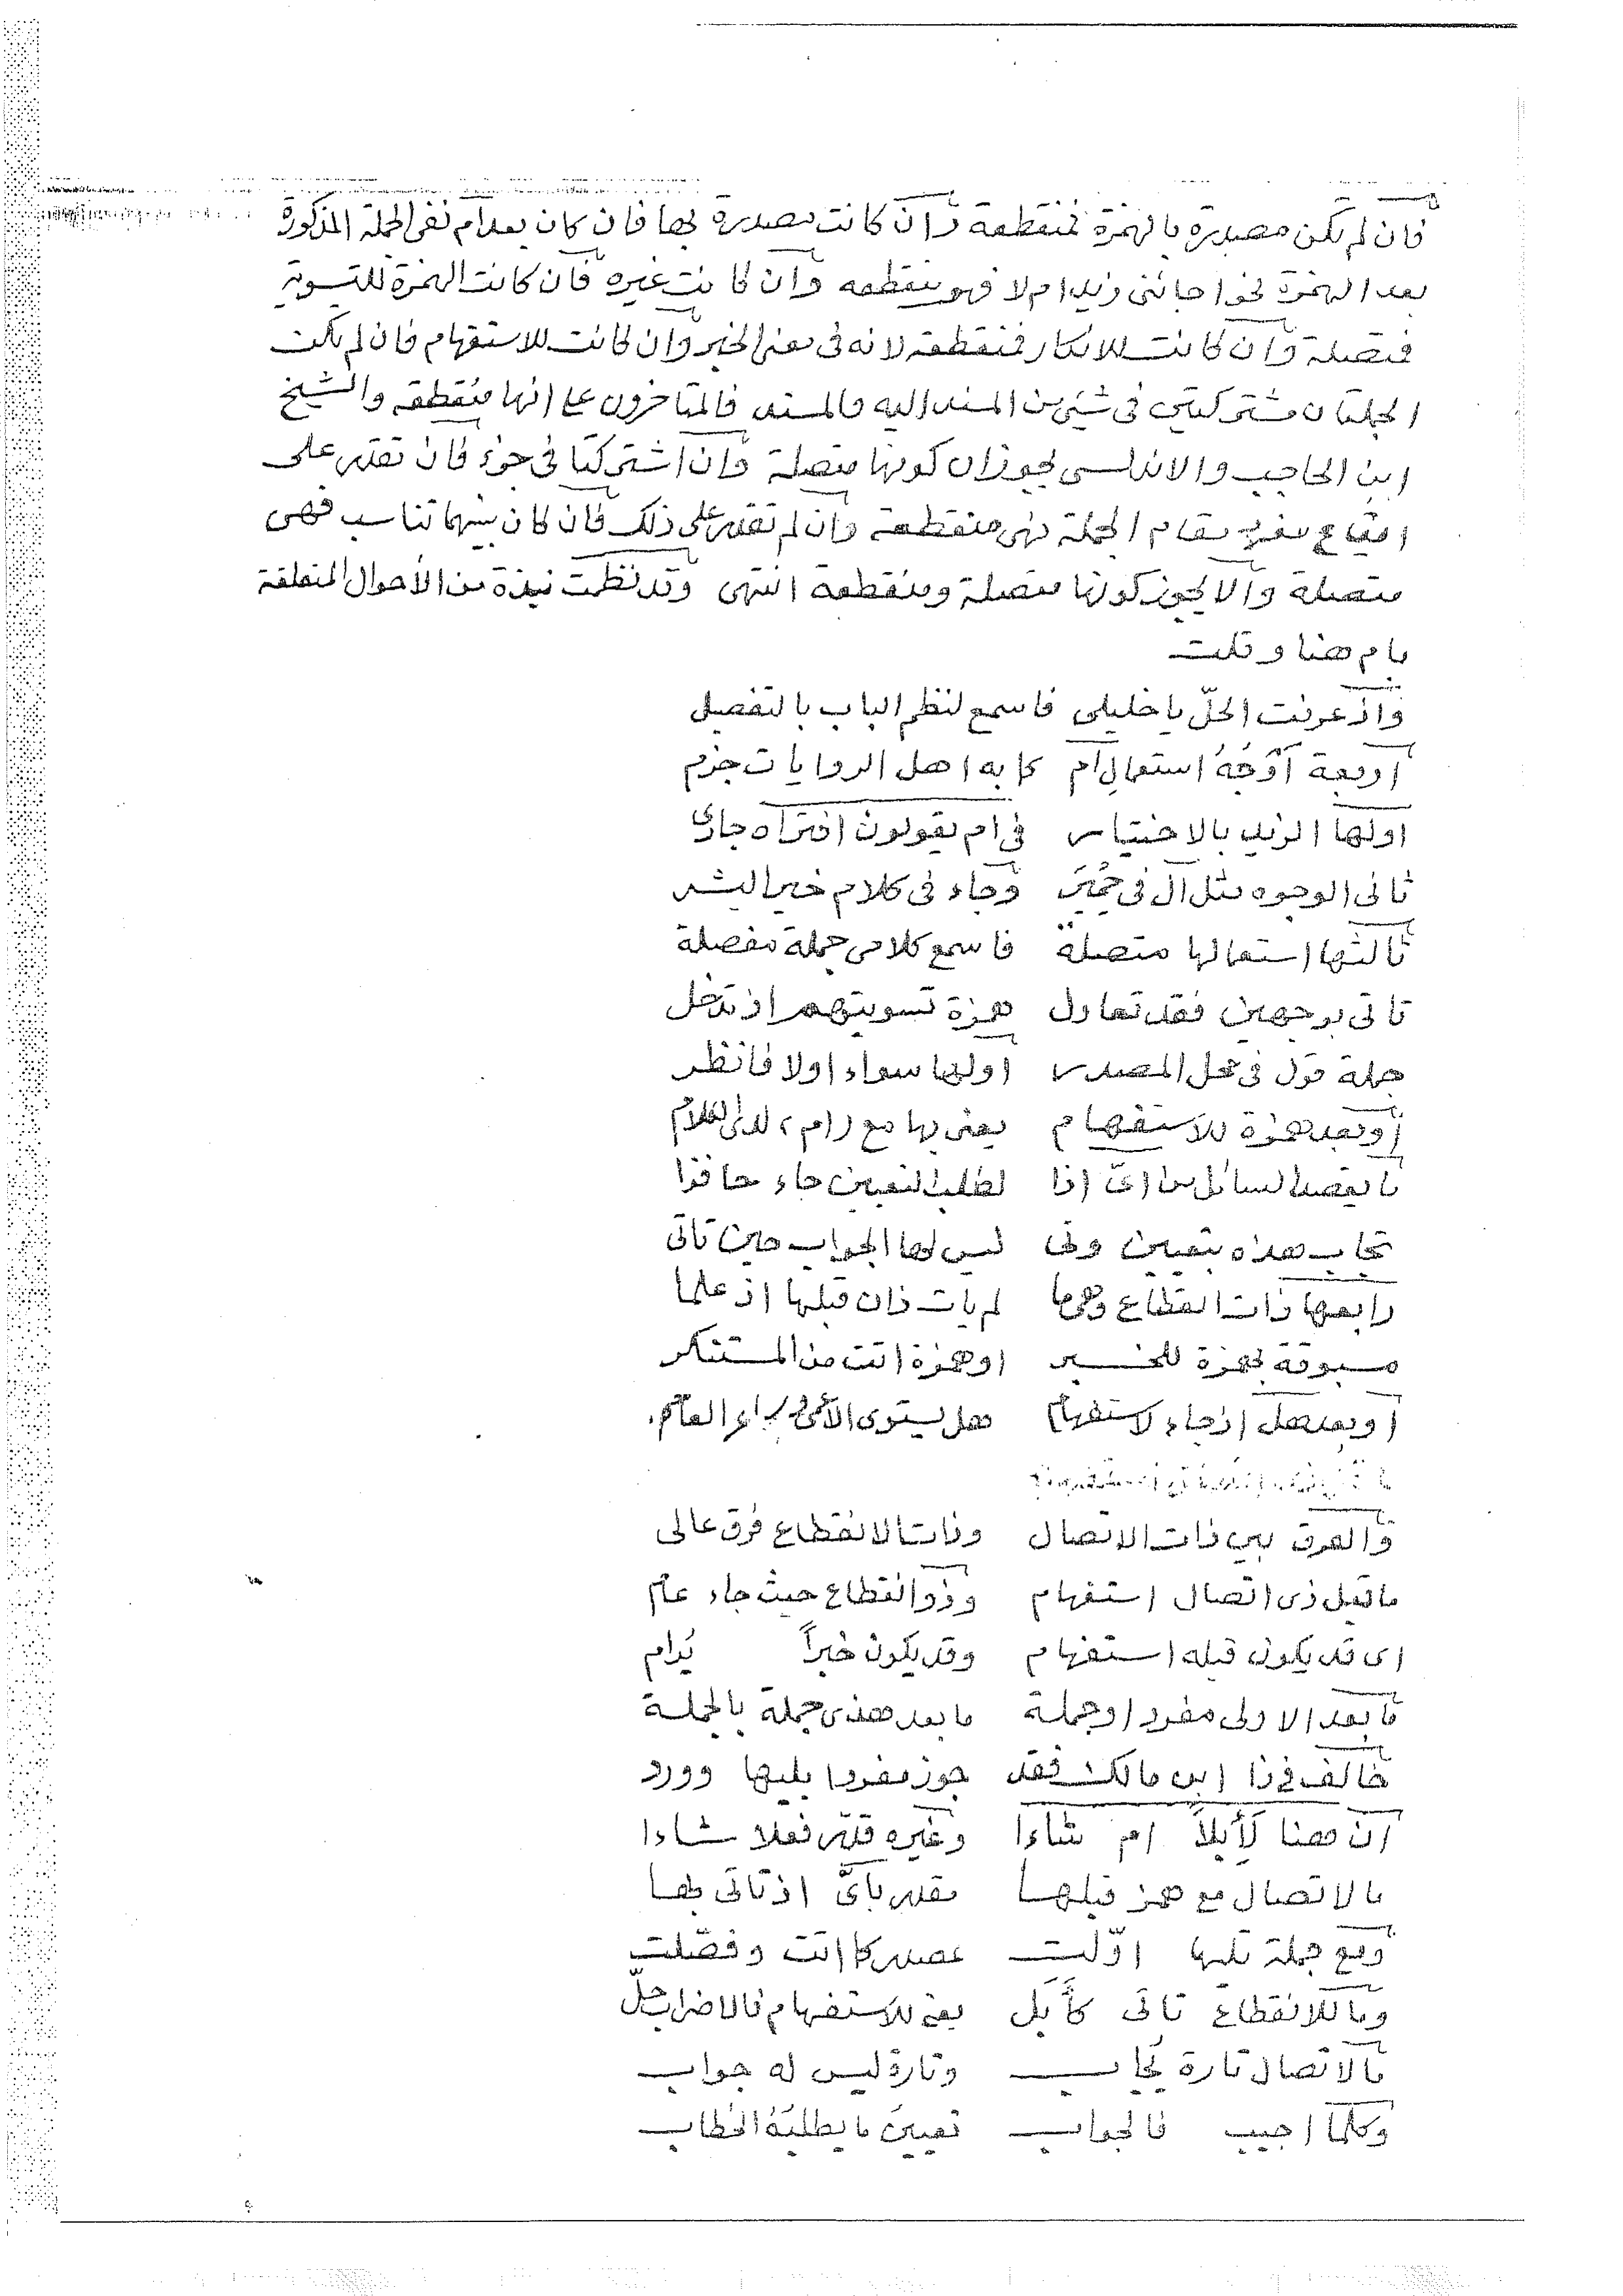 فان لم تكن مصدرة بالهمزة فمنقطعة وان كانت مصدرة بها فان كان بعد ام نفى الجملة المذكورة
بعد الهمزة نحو اجائنى زيد ام لا فهو منقطعه وان كانت غيره فان كانت الهمزة للتسوية
فمتصلة وان كانت للانكار فمنقطعة لانه فى معنى الخبر وان كانت للاستفهام فان لم يكن
الجملتان مشتركتين فى شئى من المسند اليه والمسند فالمتاخرون على انها منقطعه والشيخ
ابن الحاجب والاندلسى يجوزان كونها متصلة وان اشتركتا فى جزء فان تقدر على
ايقاع مفرد مقام الجملة فهى منقطعة وان لم تقدر على ذلك فان كان بينهما تناسب فهى
متصلة والا يجوز كونها متصلة ومنقطعة انتهى وقد نظمت نبذة من الأحوال المتعلقة
بام هنا وقلت
واذ عرفت الحلّ يا خليلى فاسمع لنظم الباب بالتفصيل
اربعة أوْجُهُ استعمالِ ام كما به اهل الروايات جزم
اولها الزيد بالاختيار فى ام يقولون افتراه جارى
ثانى الوجوه مثل ال فى حِمْيَر وجاء فى كلام خير البشر
ثالثها استعمالها متصلة فاسمع كلامى جملة مفصلة
تاتى بوجهين فقد تعادل همزة تسويتهم اذ تدخل
جملة قول فى محل المصدر اولها سواء اولا فانظر
او بعد همزة للاستفهام يعنى بها مع (ام) لدى الكلام
ما يقصد السائل من اىّ اذا لطلب التعيين جاء
تجاب هذه بتعيين وفى ليس لها الجواب حين تاتى
رابعها ذات انقطاع وهى ما لم يات ذان قبلها اذ علما
مسبوقة بهمزة للخبر او همزة اتت من المستنكر
او بعد هل اذ جاء لاستفهام هل يستوى الاعمى
والفرق بين ذات الاتصال وذات الانقطاع فرق عالى
ما قبل ذى اتصال استفهام وذو انقطاع حيث جاء عام
اى قد يكون قبله استفهام وقد يكون خبراً يُرام
ما بعد الاولى مفرد او جملة ما بعد هذى جملة بالجملة
خالف فى ذا ابن مالك فقد جوز مفردا يليها وورد
ان هنا لَأبِلاً ام شاءا وغيره قدّر فعلا شاءا
بالاتصال مع همز قبلها مقدر بأىّ اذ تاتى بها
ومع جملة تليها اوّلت بمصدر كما اتت وفصّلت
وما للانقطاع تاتى كأَبَل يعنى للاستفهام فالاضراب حلّ
بالاتصال تارة يُجاب وتارة ليس له جواب
وكلما اجيب فالجواب تعيين ما يطلبُهُ الخطاب